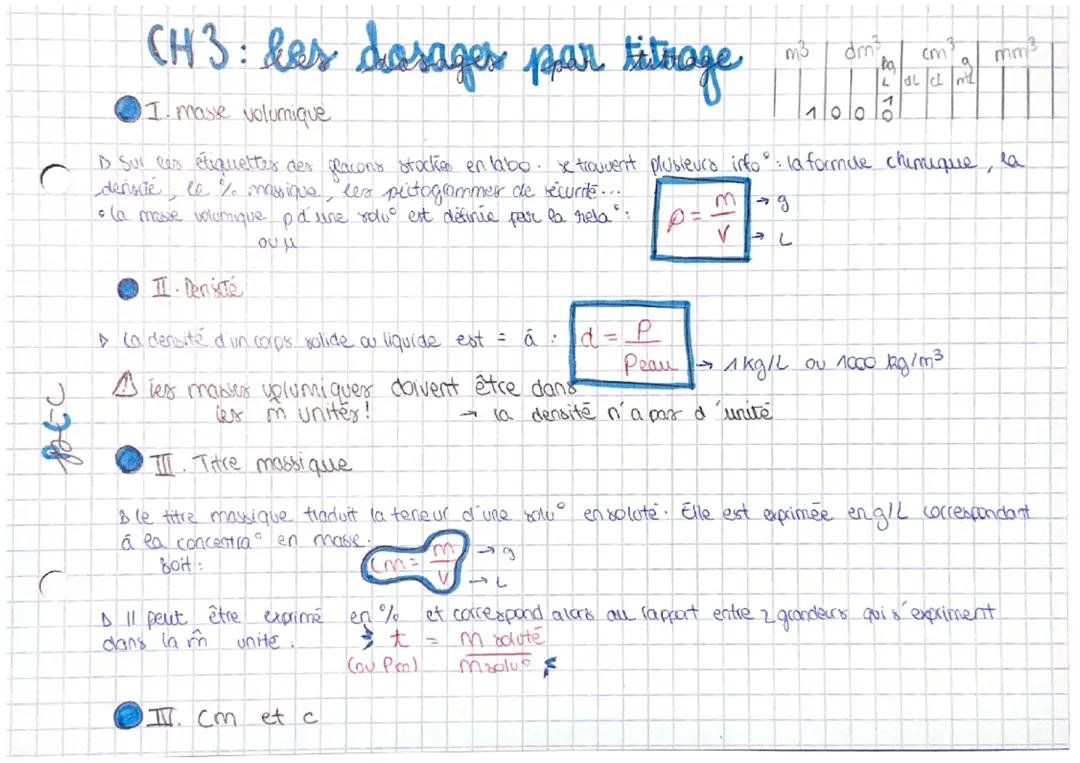 CH 3 : les dosages par titrage
m³ dm³ cm³ mm³
kg g
L dL cL mL
1 0 0 0
1 0
I. masse volumique
▷ Sur les étiquettes des flacons stockés en labo. se trouvent plusieurs info° : la formule chimique, la
densité, le % massique, les pictogrammes de sécurité...
• la masse volumique ρ d'une solu° est définie par la rela° :
ou μ
ρ = m/V → g → L
II. Densité
▷ La densité d'un corps solide ou liquide est = à : d = ρ/ρeau → 1 kg/L ou 1000 kg/m³
⚠ les masses volumiques doivent être dans
les m̂ unités !
→ la densité n'a pas d'unité
III. Titre massique
▷ le titre massique traduit la teneur d'une solu° en soluté. Elle est exprimée en g/L correspondant
à la concentra° en masse.
soit : Cm = m/V → g → L
▷ Il peut être exprimé en % et correspond alors au rapport entre 2 grandeurs qui s'expriment
dans la m̂ unité :
t = m soluté / m solu°
(ou Pm)
IV. Cm et c